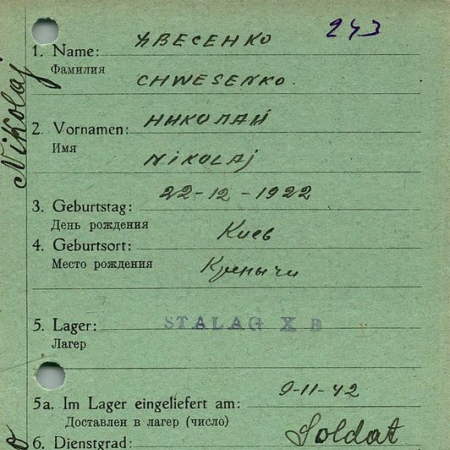 243
1. Name: ХВЕСЕНКО
Фамилия
CHWESENKO.
2. Vornamen: НИКОЛАЙ
Имя
NIKOLAJ
3. Geburtstag: 22-12-1922
День рождения
4. Geburtsort: Киев
Место рождения
5. Lager: STALAG X B
Лагер
5a. Im Lager eingeliefert am: 9-11-42
Доставлен в лагер (число)
6. Dienstgrad: Soldat
Nikolaj